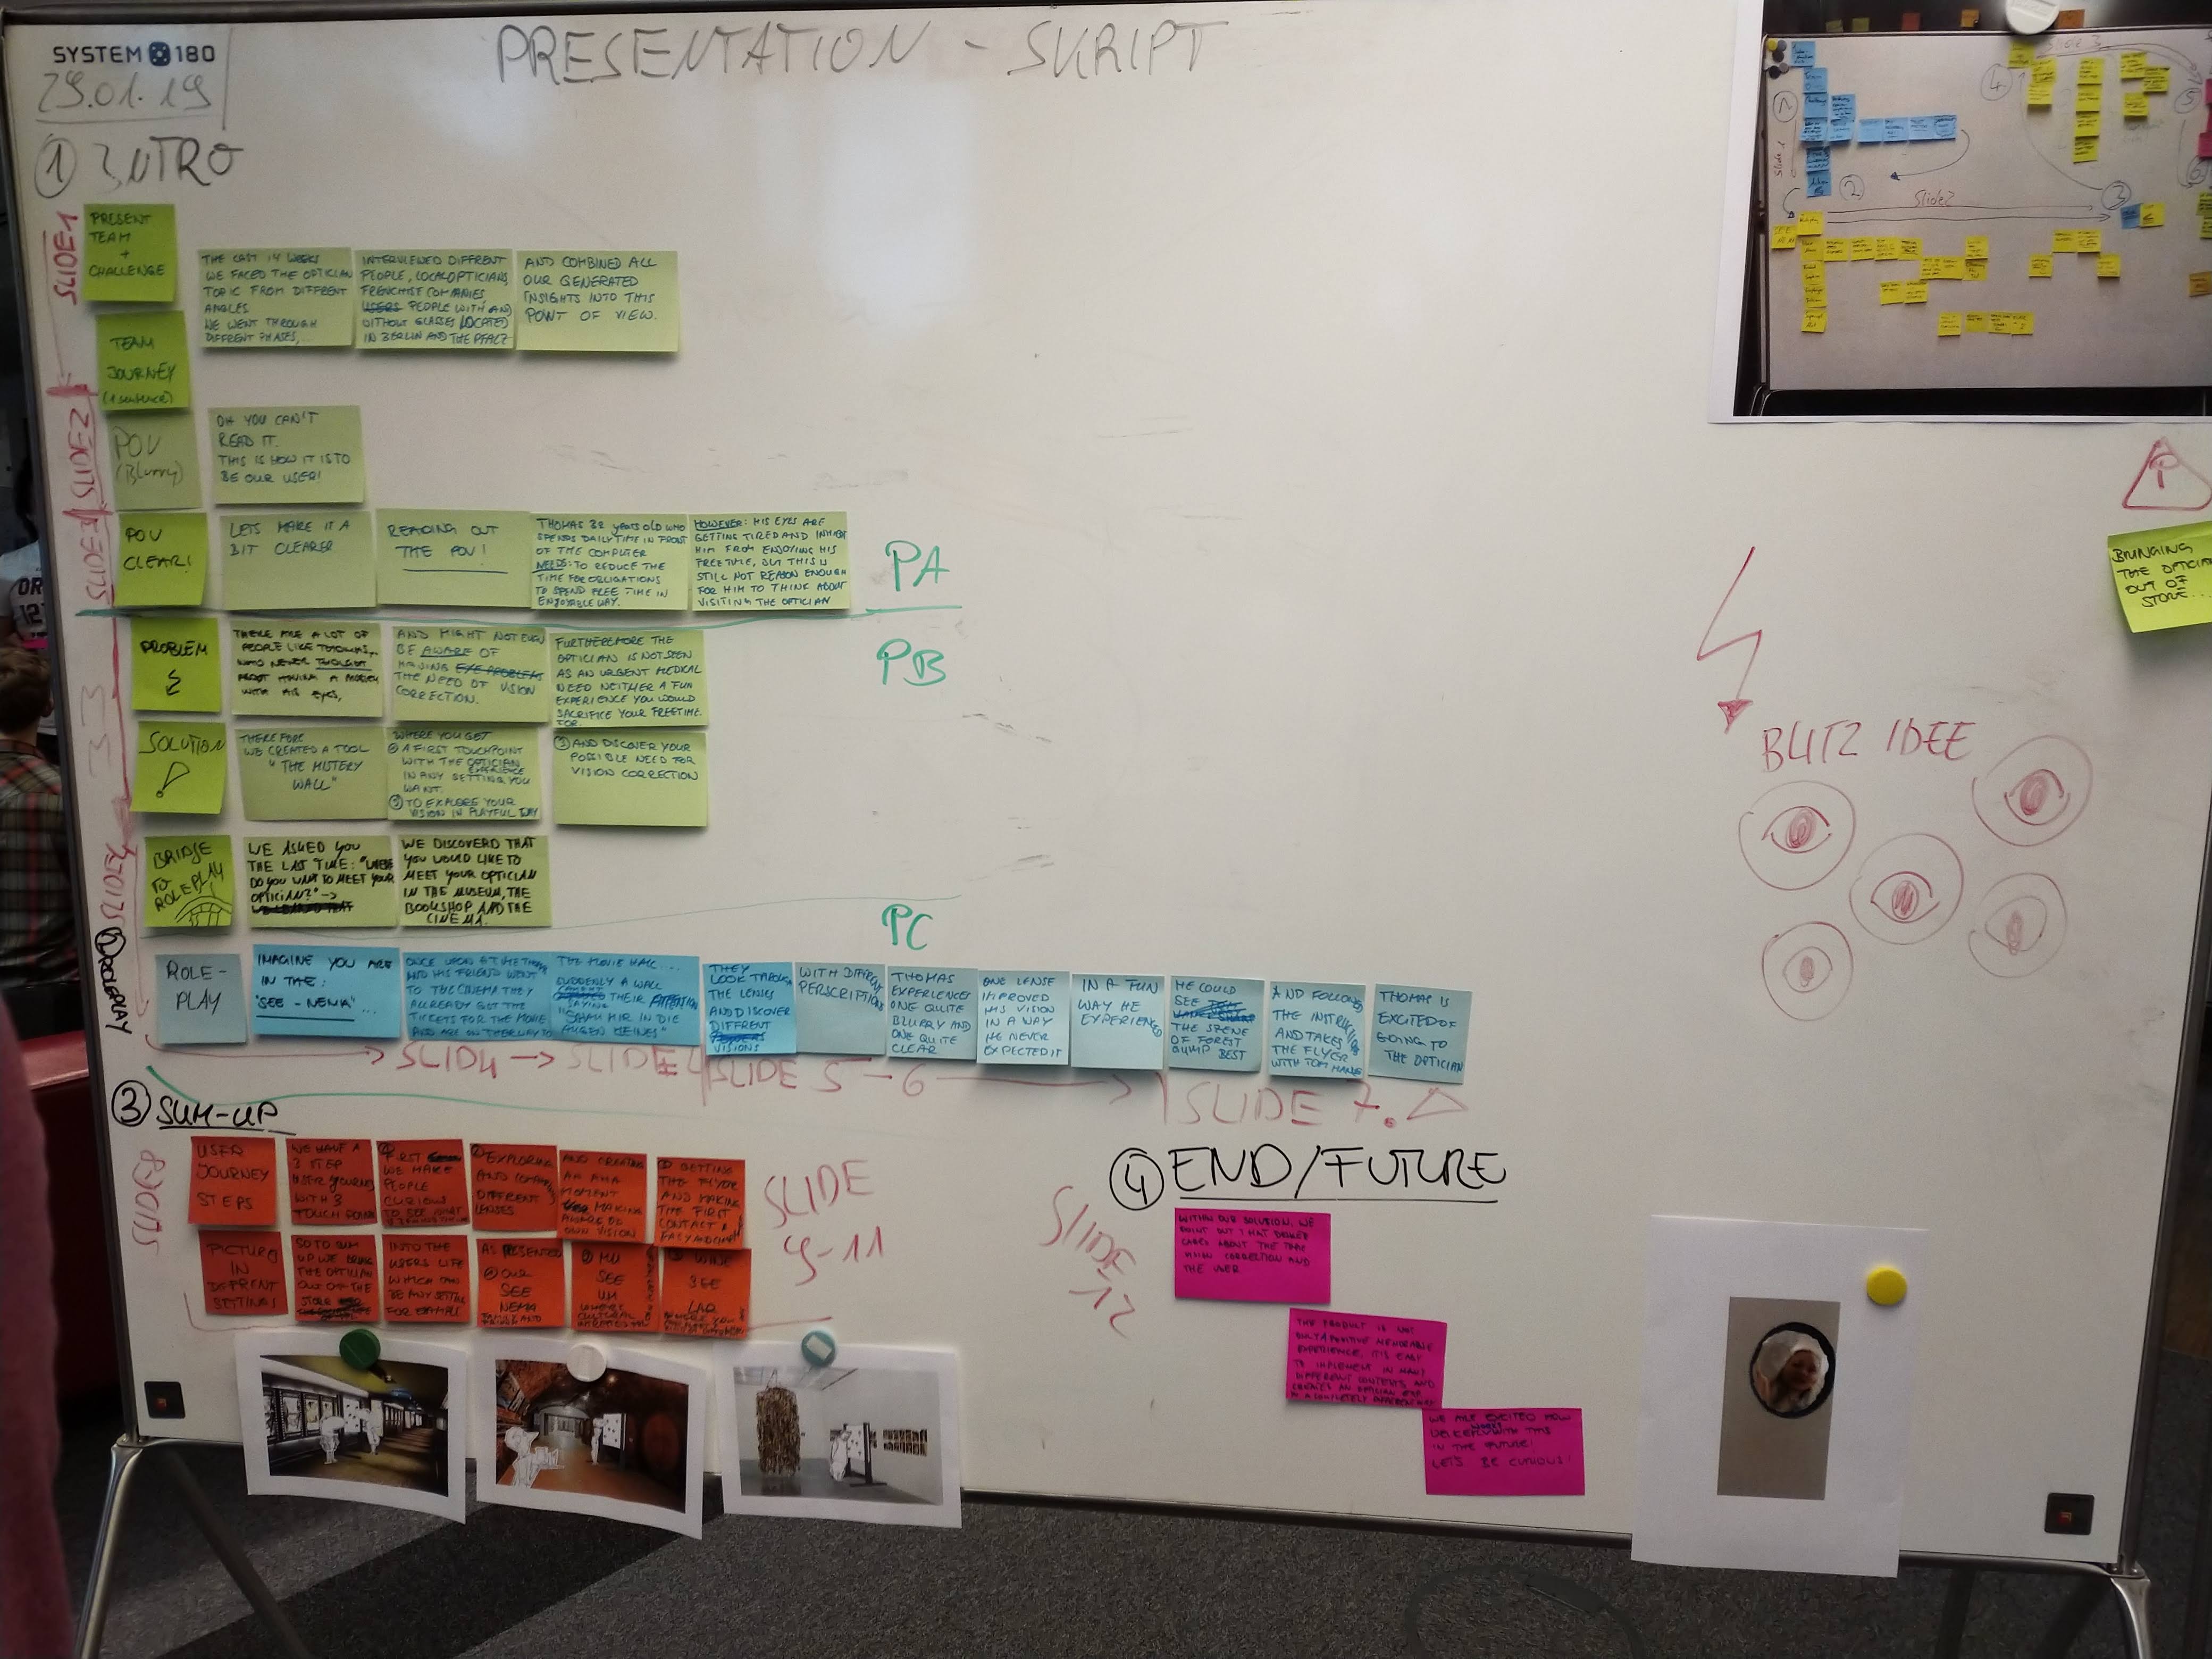 SYSTEM 180
29.01.19
PRESENTATION - SKRIPT
① INTRO
SLIDE 1
PRESENT
TEAM
+
CHALLENGE
THE LAST 14 WEEKS
WE FACED THE OPTICIAN
TOPIC FROM DIFFRENT
ANGLES
WE WENT THROUGH
DIFFRENT PHASES,...
INTERVIEWED DIFFRENT
PEOPLE, LOCAL OPTICIANS,
FRENCHISE COMPANIES
USERS PEOPLE WITH AND
WITHOUT GLASSES LOCATED
IN BERLIN AND THE PFALZ
AND COMBINED ALL
OUR GENERATED
INSIGHTS INTO THIS
POINT OF VIEW.
TEAM
JOURNEY
(1 sentence)
SLIDE 2
POV
(Blurry)
OH YOU CAN'T
READ IT.
THIS IS HOW IT IS TO
BE OUR USER!
SLIDE 3
POV
CLEAR!
LETS MAKE IT A
BIT CLEARER
READING OUT
THE POV!
THOMAS 32 years old WHO
SPENDS DAILY TIME IN FRONT
OF THE COMPUTER
NEEDS: TO REDUCE THE
TIME FOR OBLIGATIONS
TO SPEND FREE TIME IN
ENJOYABLE WAY.
HOWEVER: HIS EYES ARE
GETTING TIRED AND INHIBIT
HIM FROM ENJOYING HIS
FREETIME, BUT THIS IS
STILL NOT REASON ENOUGH
FOR HIM TO THINK ABOUT
VISITING THE OPTICIAN
PA
PB
PROBLEM
THERE ARE A LOT OF
PEOPLE LIKE THOMAS,
WHO NEVER THOUGHT
ABOUT HAVING A PROBLEM
WITH HIS EYES,
AND MIGHT NOT EVEN
BE AWARE OF
HAVING EYE PROBLEMS
THE NEED OF VISION
CORRECTION.
FURTHERMORE THE
OPTICIAN IS NOT SEEN
AS AN URGENT MEDICAL
NEED NEITHER A FUN
EXPERIENCE YOU WOULD
SACRIFICE YOUR FREETIME
FOR.
3.3
SOLUTION
!
THEREFORE
WE CREATED A TOOL
"THE MISTERY
WALL"
WHERE YOU GET
① A FIRST TOUCHPOINT
WITH THE OPTICIAN
EXPERIENCE
IN ANY SETTING YOU
WANT.
② TO EXPLORE YOUR
VISION IN PLAYFUL WAY
③ AND DISCOVER YOUR
POSSIBLE NEED FOR
VISION CORRECTION
SLIDE 4
BRIDGE
TO
ROLEPLAY
WE ASKED YOU
THE LAST TIME: "WHERE
DO YOU WANT TO MEET YOUR
OPTICIAN?" →
WE LEARNED THAT
WE DISCOVERD THAT
YOU WOULD LIKE TO
MEET YOUR OPTICIAN
IN THE MUSEUM, THE
BOOKSHOP AND THE
CINEMA.
PC
② ROLEPLAY
ROLE-
PLAY
IMAGINE YOU ARE
IN THE:
"SEE - NEMA" ...
ONCE UPON A TIME THOMAS
AND HIS FRIEND WENT
TO THE CINEMA THEY
ALLREADY GOT THE
TICKETS FOR THE MOVIE
AND ARE ON THEIR WAY TO
THE MOVIE HALL...
SUDDENLY A WALL
CAUGHT THEIR ATTENTION
SAYING
"SCHAU MIR IN DIE
AUGEN KLEINES"
THEY
LOOK THROUGH
THE LENSES
AND DISCOVER
DIFFRENT
VISIONS
WITH DIFFRENT
PERSCRIPTIONS
THOMAS
EXPERIENCES
ONE QUITE
BLURRY AND
ONE QUITE
CLEAR
ONE LENSE
IMPROVED
HIS VISION
IN A WAY
HE NEVER
EXPECTED IT
IN A FUN
WAY HE
EXPERIENCED
HE COULD
SEE
THE SZENE
OF FOREST
GUMP BEST
AND FOLLOWS
THE INSTRUCTIONS
AND TAKES
THE FLYER
WITH TOM HANKS
THOMAS IS
EXCITED OF
GOING TO
THE OPTICIAN
→ SLID4 → SLIDE 4
SLIDE 5 - 6 →
SLIDE 7.
③ SUM-UP
SLIDE 8
USER
JOURNEY
STEPS
WE HAVE A
3 STEP
USER JOURNEY
WITH 3
TOUCH POINTS
① FIRST
WE MAKE
PEOPLE
CURIOUS
TO SEE WHAT
② EXPLORING
AND COMPARING
DIFFERENT
LENSES
AND CREATING
AN AHA
MOMENT
MAKING
AWARE OF
OWN VISION
③ GETTING
THE FLYER
AND MAKING
THE FIRST
CONTACT
EASY AND
SLIDE
9-11
PICTURE
IN
DIFFRENT
SETTINGS
SO TO SUM
UP WE BRING
THE OPTICIAN
OUT OF THE
STORE
INTO THE
USERS LIFE
WHICH CAN
BE ANY SETTING
FOR EXAMPLE
AS PRESENTED
① OUR
SEE
NEMA
② MU
SEE
UM
CULTURAL
③ WINE
SEE
LAR
④ END/FUTURE
SLIDE
12
WITHIN OUR SOLUTION, WE
POINT OUT THAT
CARES ABOUT THE
VISION CORRECTION AND
THE USER.
THE PRODUCT IS NOT
ONLY A POSITIVE MEMORABLE
EXPERIENCE, IT'S EASY
TO IMPLEMENT IN MANY
DIFFERENT CONTEXTS AND
CREATES AN OPTICIAN EXP.
IN A COMPLETELY DIFFERENT WAY
WE ARE EXCITED HOW
WORKS WITH THIS
IN THE FUTURE!
LET'S BE CURIOUS!
BLITZ IDEE
BRINGING
THE OPTICIAN
OUT OF
STORE...
Slide 3
Slide 1
Slide 2
①
②
③
④
⑤
⑥